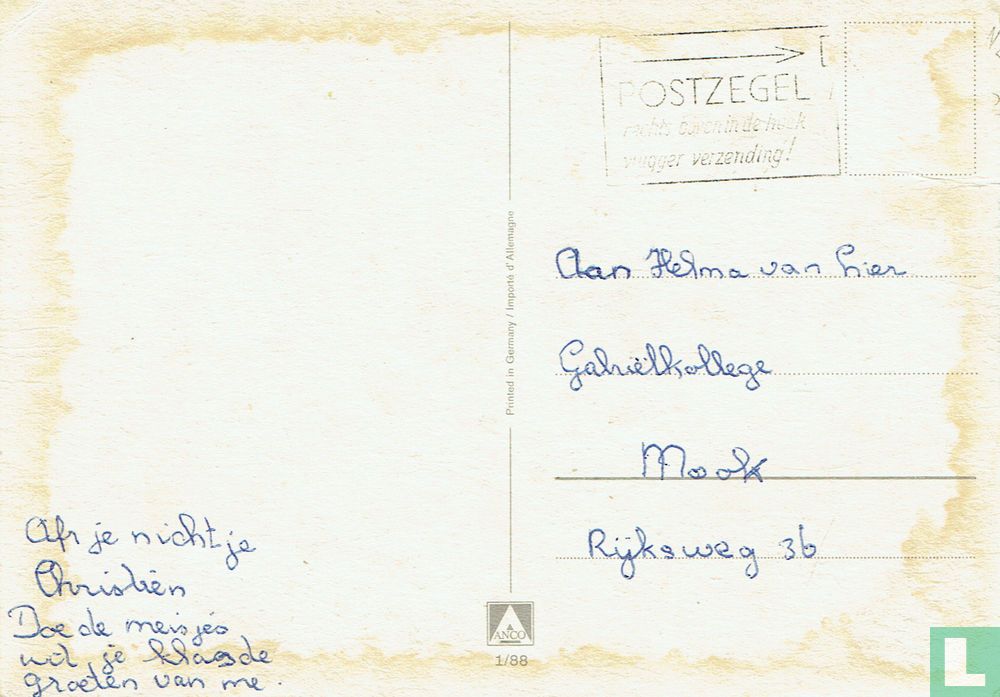 POSTZEGEL
rechts boven in de hoek
vlugger verzending!
Aan Helma van Lier
Gabriëlkollege
Mook
Rijksweg 36
Printed in Germany / Importé d'Allemagne
Afz je nichtje
Christien
Doe de meisjes
uit je klas de
groeten van me.
ANCO
1/88
L